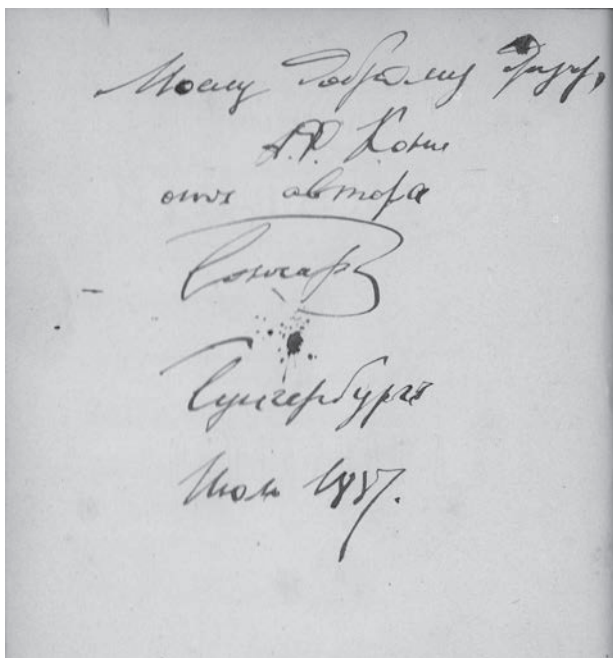 Моему доброму другу,
А.Ѳ. Кони
отъ автора
Гончаров
Гунгербургъ
Июль 1887.